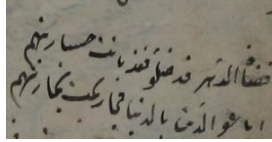 قضاة الدهر قد ضلوا فقد بانت خسارتهم
اباعو الدين بالدنيا فما ربحت تجارتهم